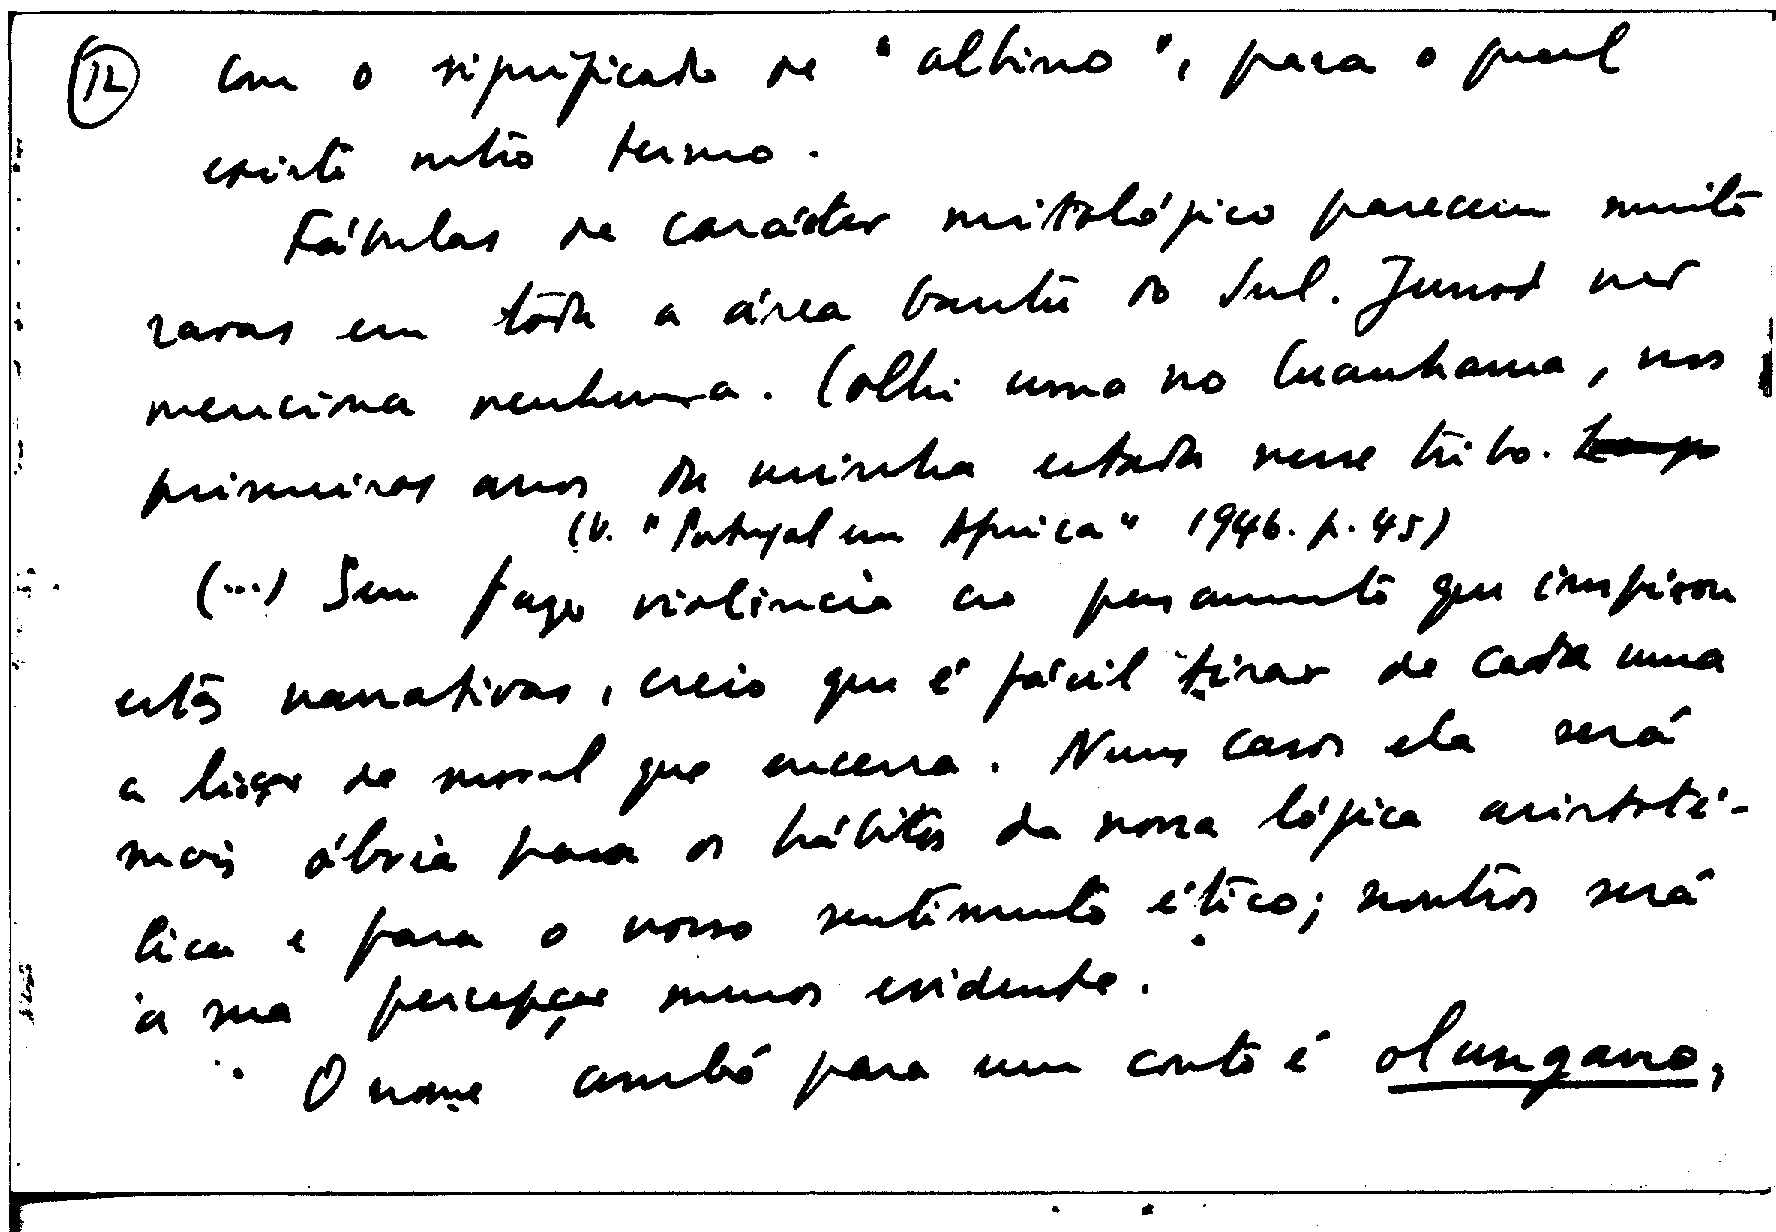 12 com o significado de "albino", para o qual
existe outro termo.
Fábulas de carácter mitológico parecem muito
raras em tôda a área bantu do Sul. Junod não
menciona nenhuma. Colhi uma no Cuanhama, nos
primeiros anos da minha estada nesse tribo.
(V. "Portugal em Africa" 1946. p. 45)
(...) Sem fazer violência ao pensamento que inspirou
estas narrativas, creio que é fácil tirar de cada uma
a lição de moral que encerra. Nuns casos ela será
mais óbvia para os hábitos da nossa lógica aristoté-
lica e para o nosso sentimento ético; noutros será
a sua percepção menos evidente.
O nome ambó para um conto é olungano,